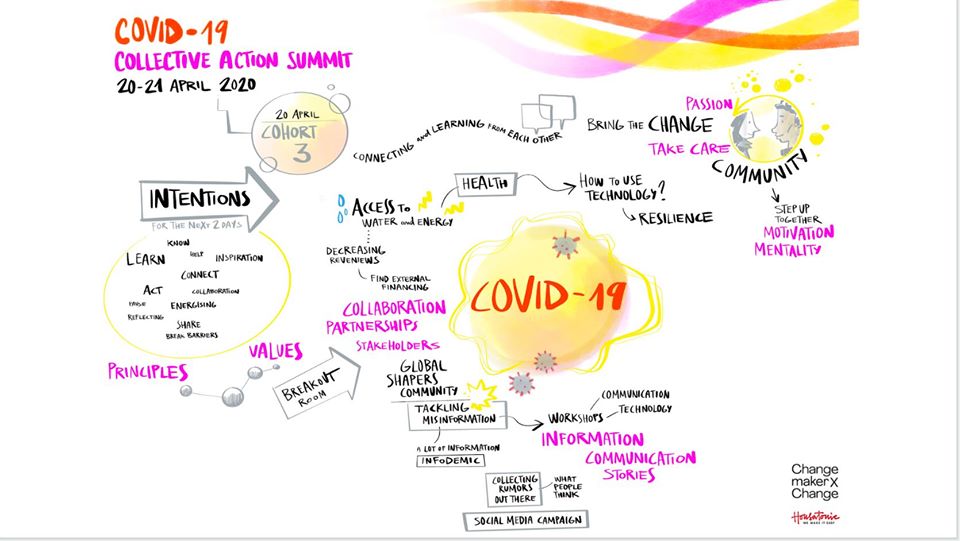 COVID-19
COLLECTIVE ACTION SUMMIT
20-21 APRIL 2020
20 APRIL
COHORT
3
CONNECTING and LEARNING FROM EACH OTHER
BRING THE CHANGE
PASSION
TAKE CARE
COMMUNITY
STEP UP
TOGETHER
MOTIVATION
MENTALITY
INTENTIONS
FOR THE NEXT 2 DAYS
KNOW
LEARN
HELP
INSPIRATION
CONNECT
ACT
COLLABORATION
PAUSE
ENERGISING
REFLECTING
SHARE
BREAK BARRIERS
PRINCIPLES
VALUES
BREAKOUT
ROOM
ACCESS TO
WATER and ENERGY
HEALTH
HOW TO USE
TECHNOLOGY?
RESILIENCE
DECREASING
REVENIEWS
FIND EXTERNAL
FINANCING
COLLABORATION
PARTNERSHIPS
STAKEHOLDERS
COVID-19
GLOBAL
SHAPERS
COMMUNITY
TACKLING
MISINFORMATION
A LOT OF INFORMATION
INFODEMIC
WORKSHOPS
COMMUNICATION
TECHNOLOGY
INFORMATION
COMMUNICATION
STORIES
COLLECTING
RUMORS
OUT THERE
WHAT
PEOPLE
THINK
SOCIAL MEDIA CAMPAIGN
Change
makerX
Change
Housatonic
WE MAKE IT EASY